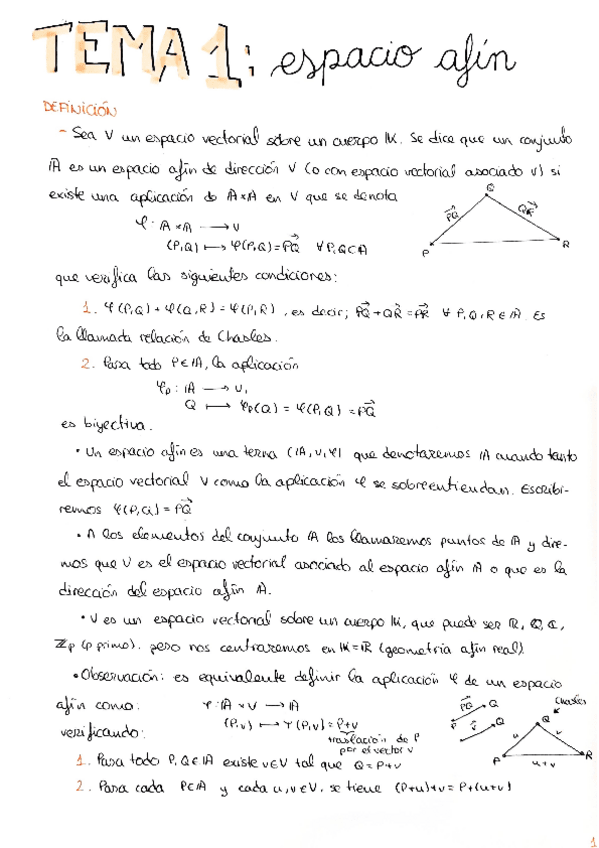 TEMA 1: espacio afín
DEFINICIÓN
- Sea V un espacio vectorial sobre un cuerpo IK. Se dice que un conjunto
A es un espacio afín de dirección V (o con espacio vectorial asociado V) si
existe una aplicación de A×A en V que se denota
φ: A×A → V
(P,Q) ↦ φ(P,Q) = PQ⃗ ∀P,Q∈A
Q
PQ⃗
QR⃗
P
R
que verifica las siguientes condiciones:
1. φ(P,Q) + φ(Q,R) = φ(P,R), es decir; PQ⃗ + QR⃗ = PR⃗ ∀ P,Q,R ∈ A. Es
la llamada relación de Chasles.
2. Para todo P∈A, la aplicación
φp: A → V,
Q ↦ φp(Q) = φ(P,Q) = PQ⃗
es biyectiva.
• Un espacio afín es una terna (A,V,φ) que denotaremos A cuando tanto
el espacio vectorial V como la aplicación φ se sobreentiendan. Escribi-
remos φ(P,Q) = PQ⃗
• A los elementos del conjunto A los llamaremos puntos de A y dire-
mos que V es el espacio vectorial asociado al espacio afín A o que es la
dirección del espacio afín A.
• V es un espacio vectorial sobre un cuerpo IK, que puede ser R, Q, C,
Zp (p primo). pero nos centraremos en IK=R (geometría afín real)
• Observación: es equivalente definir la aplicación φ de un espacio
afín como: φ: A × V → A
verificando: (P,v) ↦ Ψ(P,v) = P+v
traslación de P
por el vector v
PQ⃗ Q
P v⃗ Q
Chasles
Q
u
v
P
R
u+v
1. Para todo P,Q∈A existe v∈V tal que Q=P+v
2. Para cada P∈A y cada u,v∈V, se tiene (P+u)+v = P+(u+v)
1